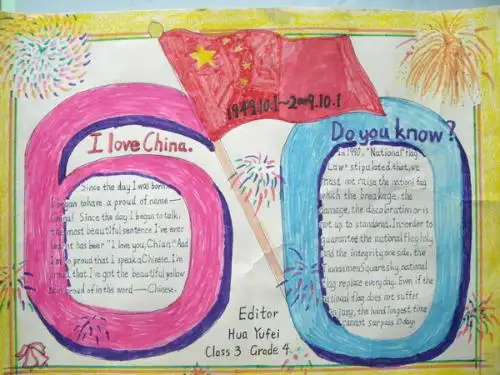 1949.10.1~2009.10.1
I love China.
Since the day I was born,
I began to have a proud of name—
China! Since the day I began to talk,
the most beautiful sentence I've ever
it has beer "I love you, Chian." And
I'm proud that I speak a Chinese. I'm
proud that I've got the beautiful yellow
skin proud of in the word—Chinese.
Do you know?
In 1990, "National flag
Law" stipulated that, we
must not raise the nationl flag
which the breakage, the
damage, the discoloration or is
not up to standard. In order to
guarantee the national flag holy
and the integrity one side, the
Tiananmen Square sky national
flag replace everyday. Even if the
national flag does not suffer
injury, the hand longest time
cannot surpass 10 day.
Editor
Hua Yufei
Class 3 Grade 4